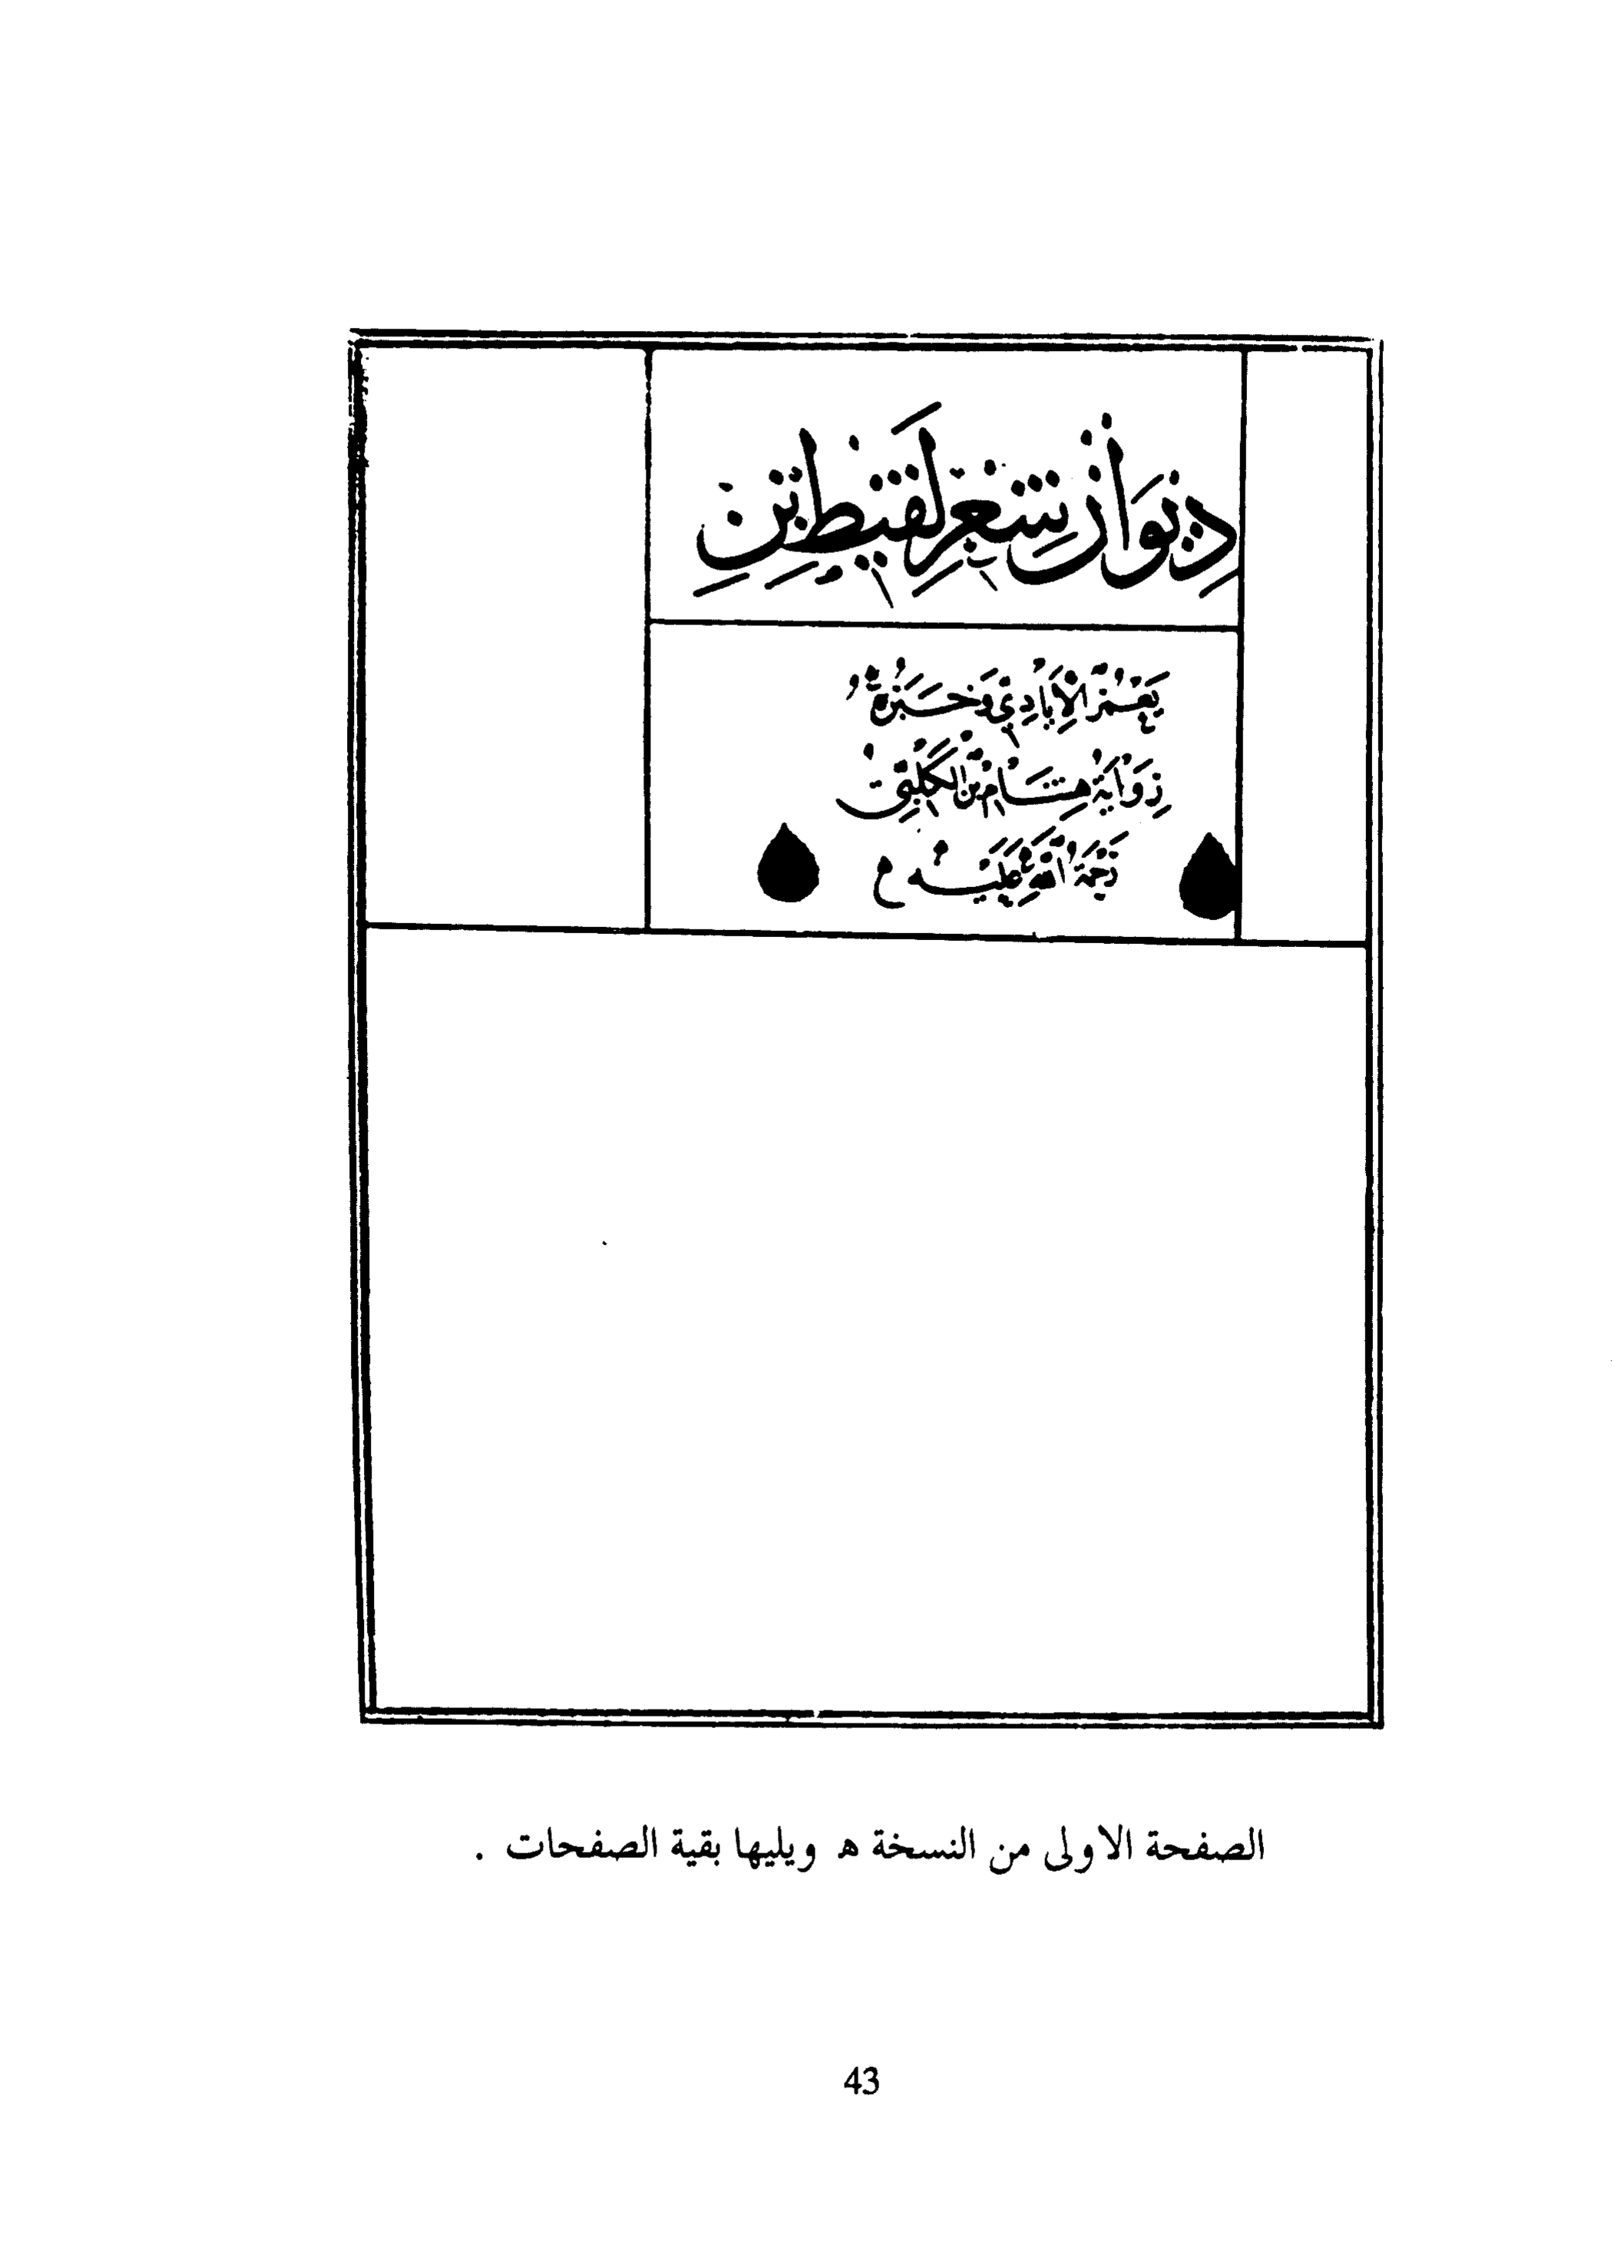 دِيوَانُ شِعْرِ لَقِيطِ بْنِ
يَعْمُرَ الإِيَادِيِّ وَخَبَرُهُ
رِوَايَةُ هِشَامِ بْنِ الكَلْبِيِّ
رَحْمَةُ اللهِ عَلَيْهِ
الصفحة الاولى من النسخة هـ ويليها بقية الصفحات .
43